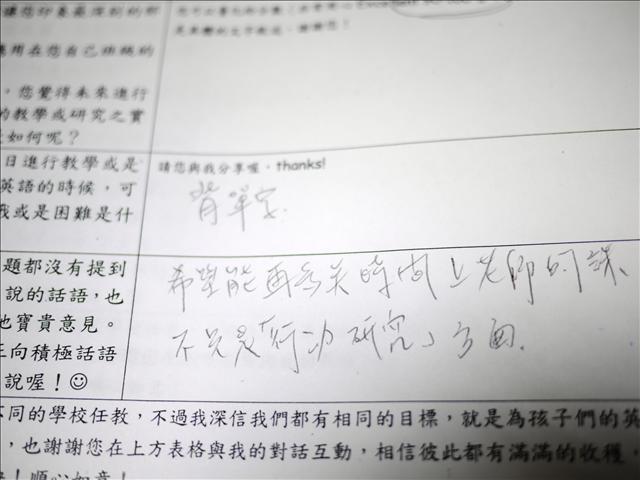 讓您印象最深刻的部
應用在您自己班級的
，您覺得未來進行
的教學或研究之實
如何呢？
日進行教學或是
英語的時候，可
我或是困難是什
請您與我分享喔，thanks!
背單字.
題都沒有提到
說的話語，也
寶貴意見。
正向積極話語
說喔！☺
希望能再多点時間上老師的課、
不只是「行動研究」方面.
不同的學校任教，不過我深信我們都有相同的目標，就是為孩子們的英
，也謝謝您在上方表格與我的對話互動，相信彼此都有滿滿的收穫，
！順心如意！